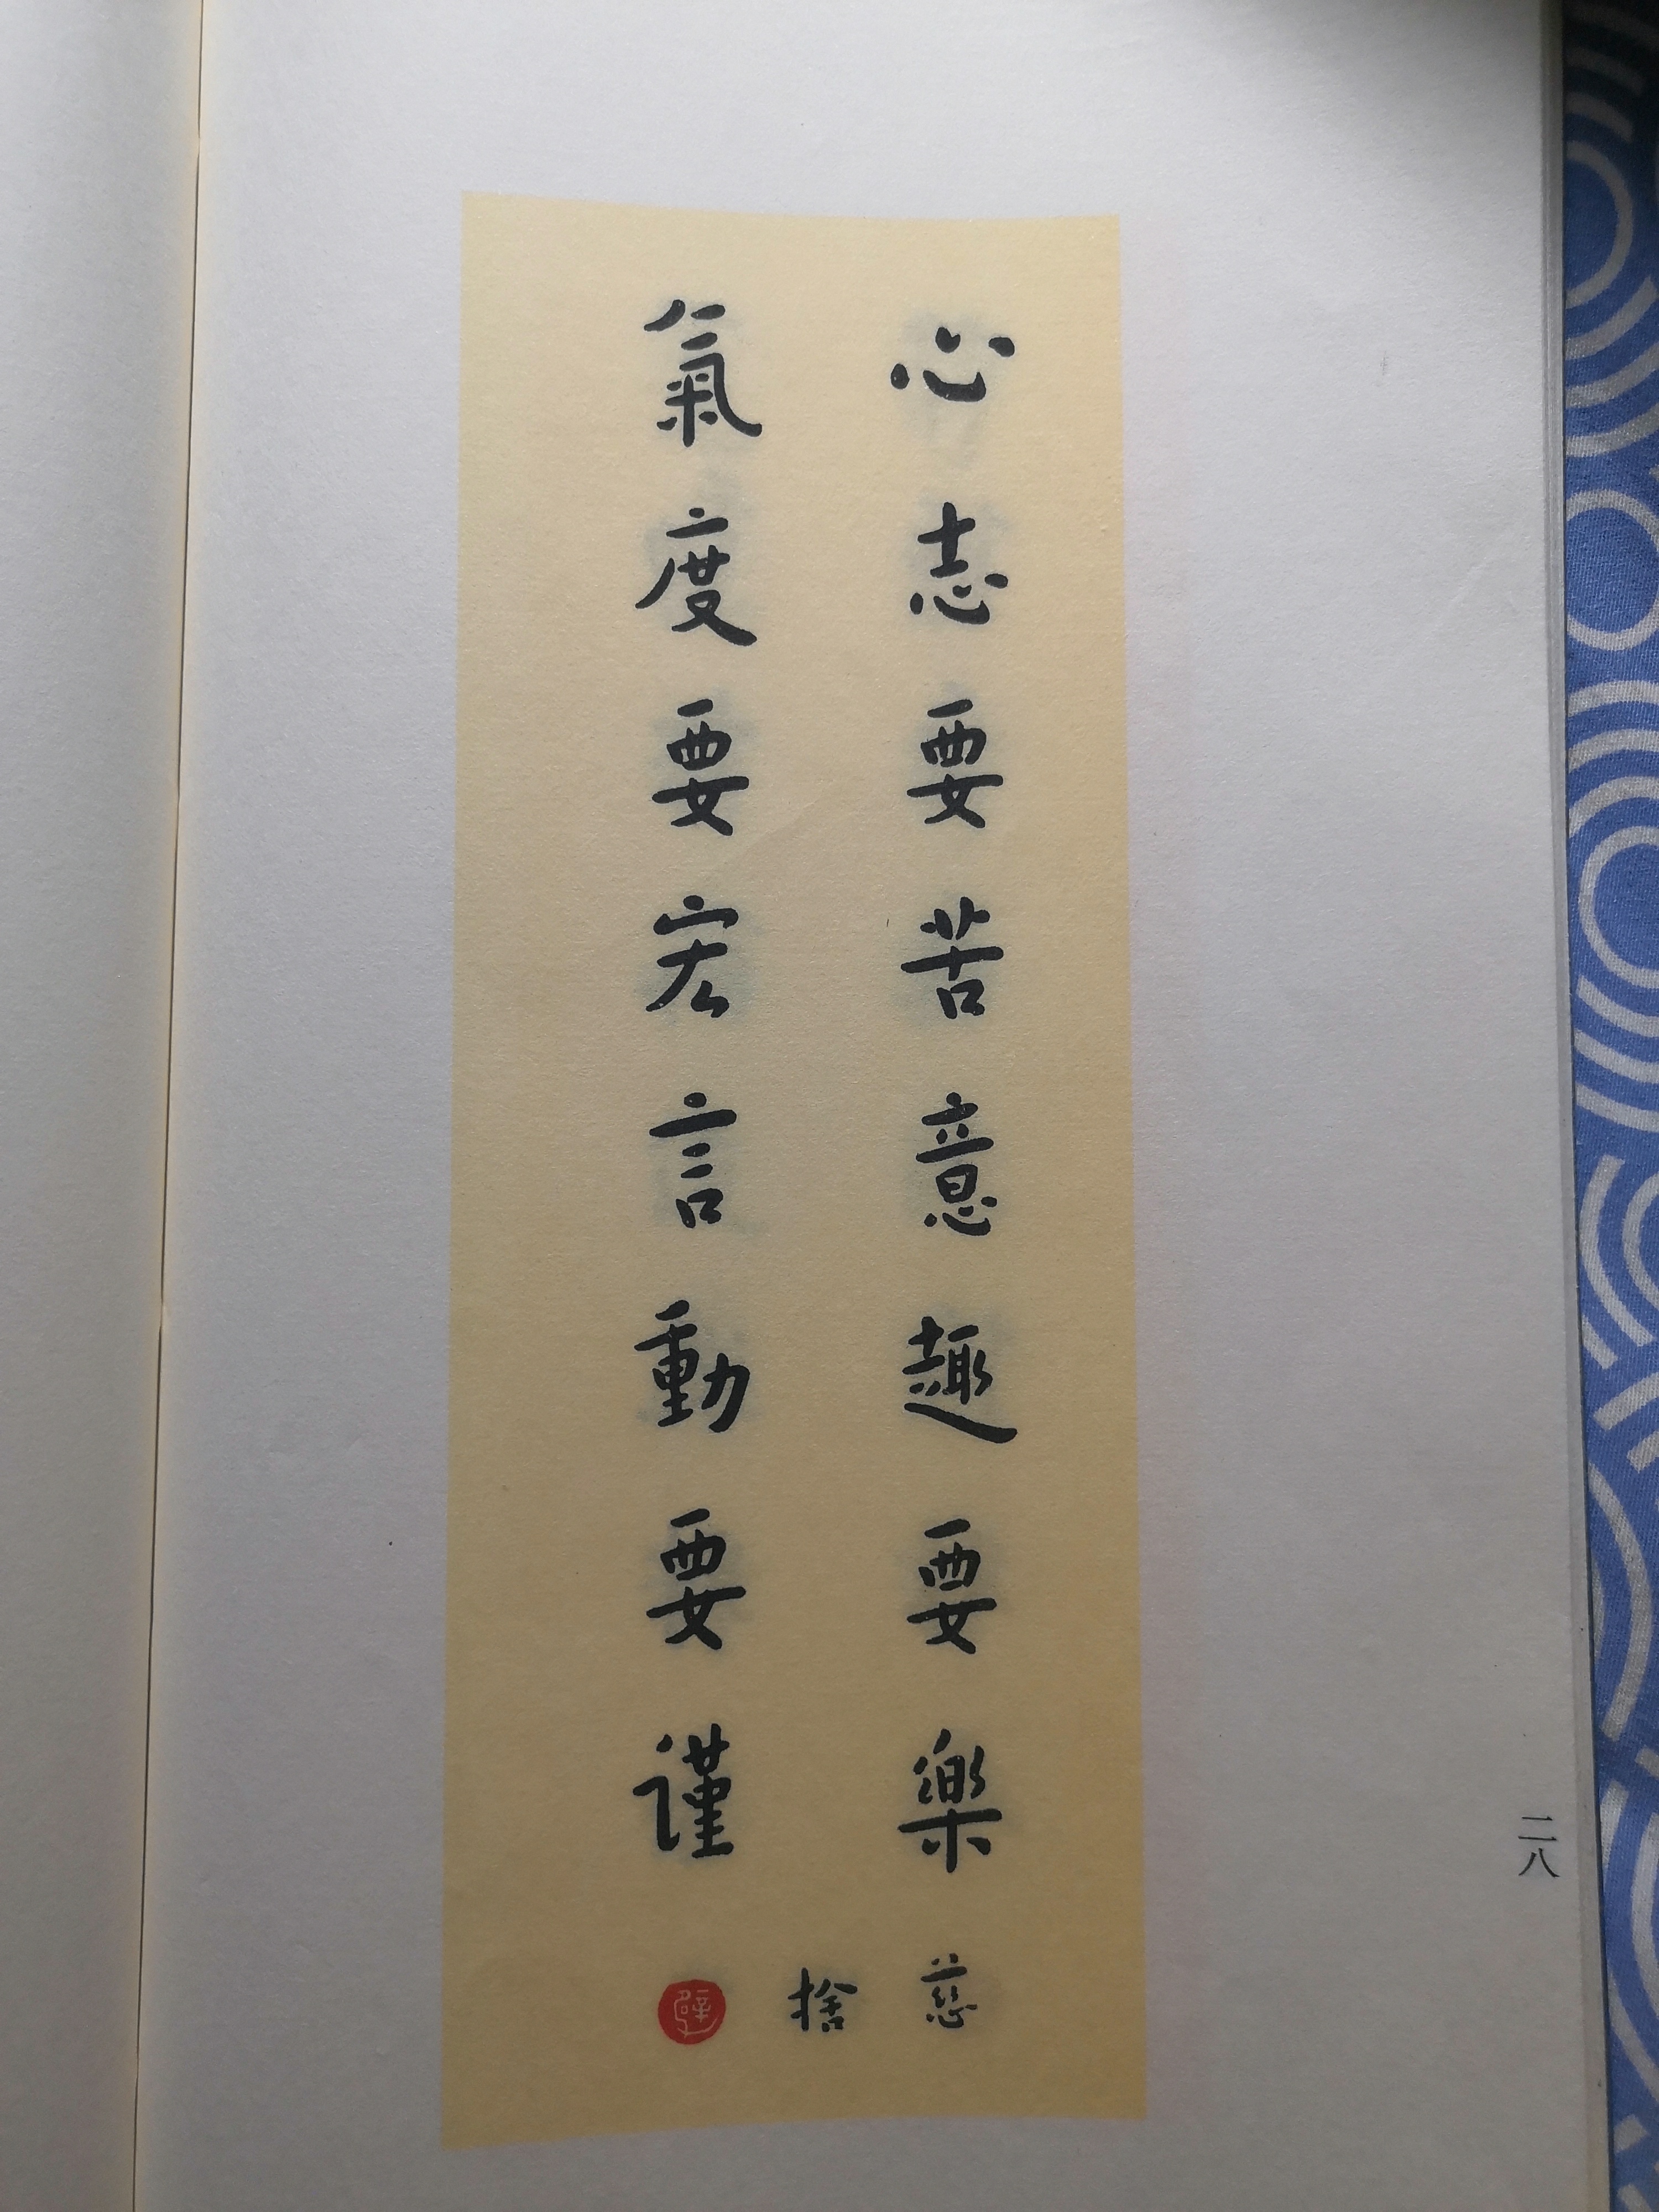 心志要苦意趣要樂
氣度要宏言動要謹
慈
捨
二八